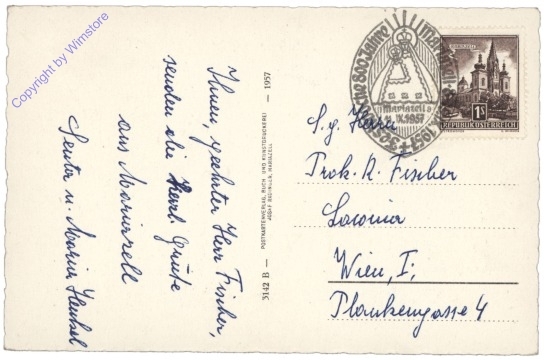 Copyright by Wimstore
Ihnen, geehrter Herr Fischer,
senden die Herzl Grüße
aus Mariazell
Senta u. Maria Henkel
3142 B — POSTKARTENVERLAG, BUCH UND KUNSTDRUCKEREI — 1957
JOSEF RADINGER, MARIAZELL
800 Jahre
Mariazell
1157
1957
MARIAZELL
1S
REPUBLIK ÖSTERREICH
S. g. Herrn
Prok. R. Fischer
Wien, I;
Plankengasse 4